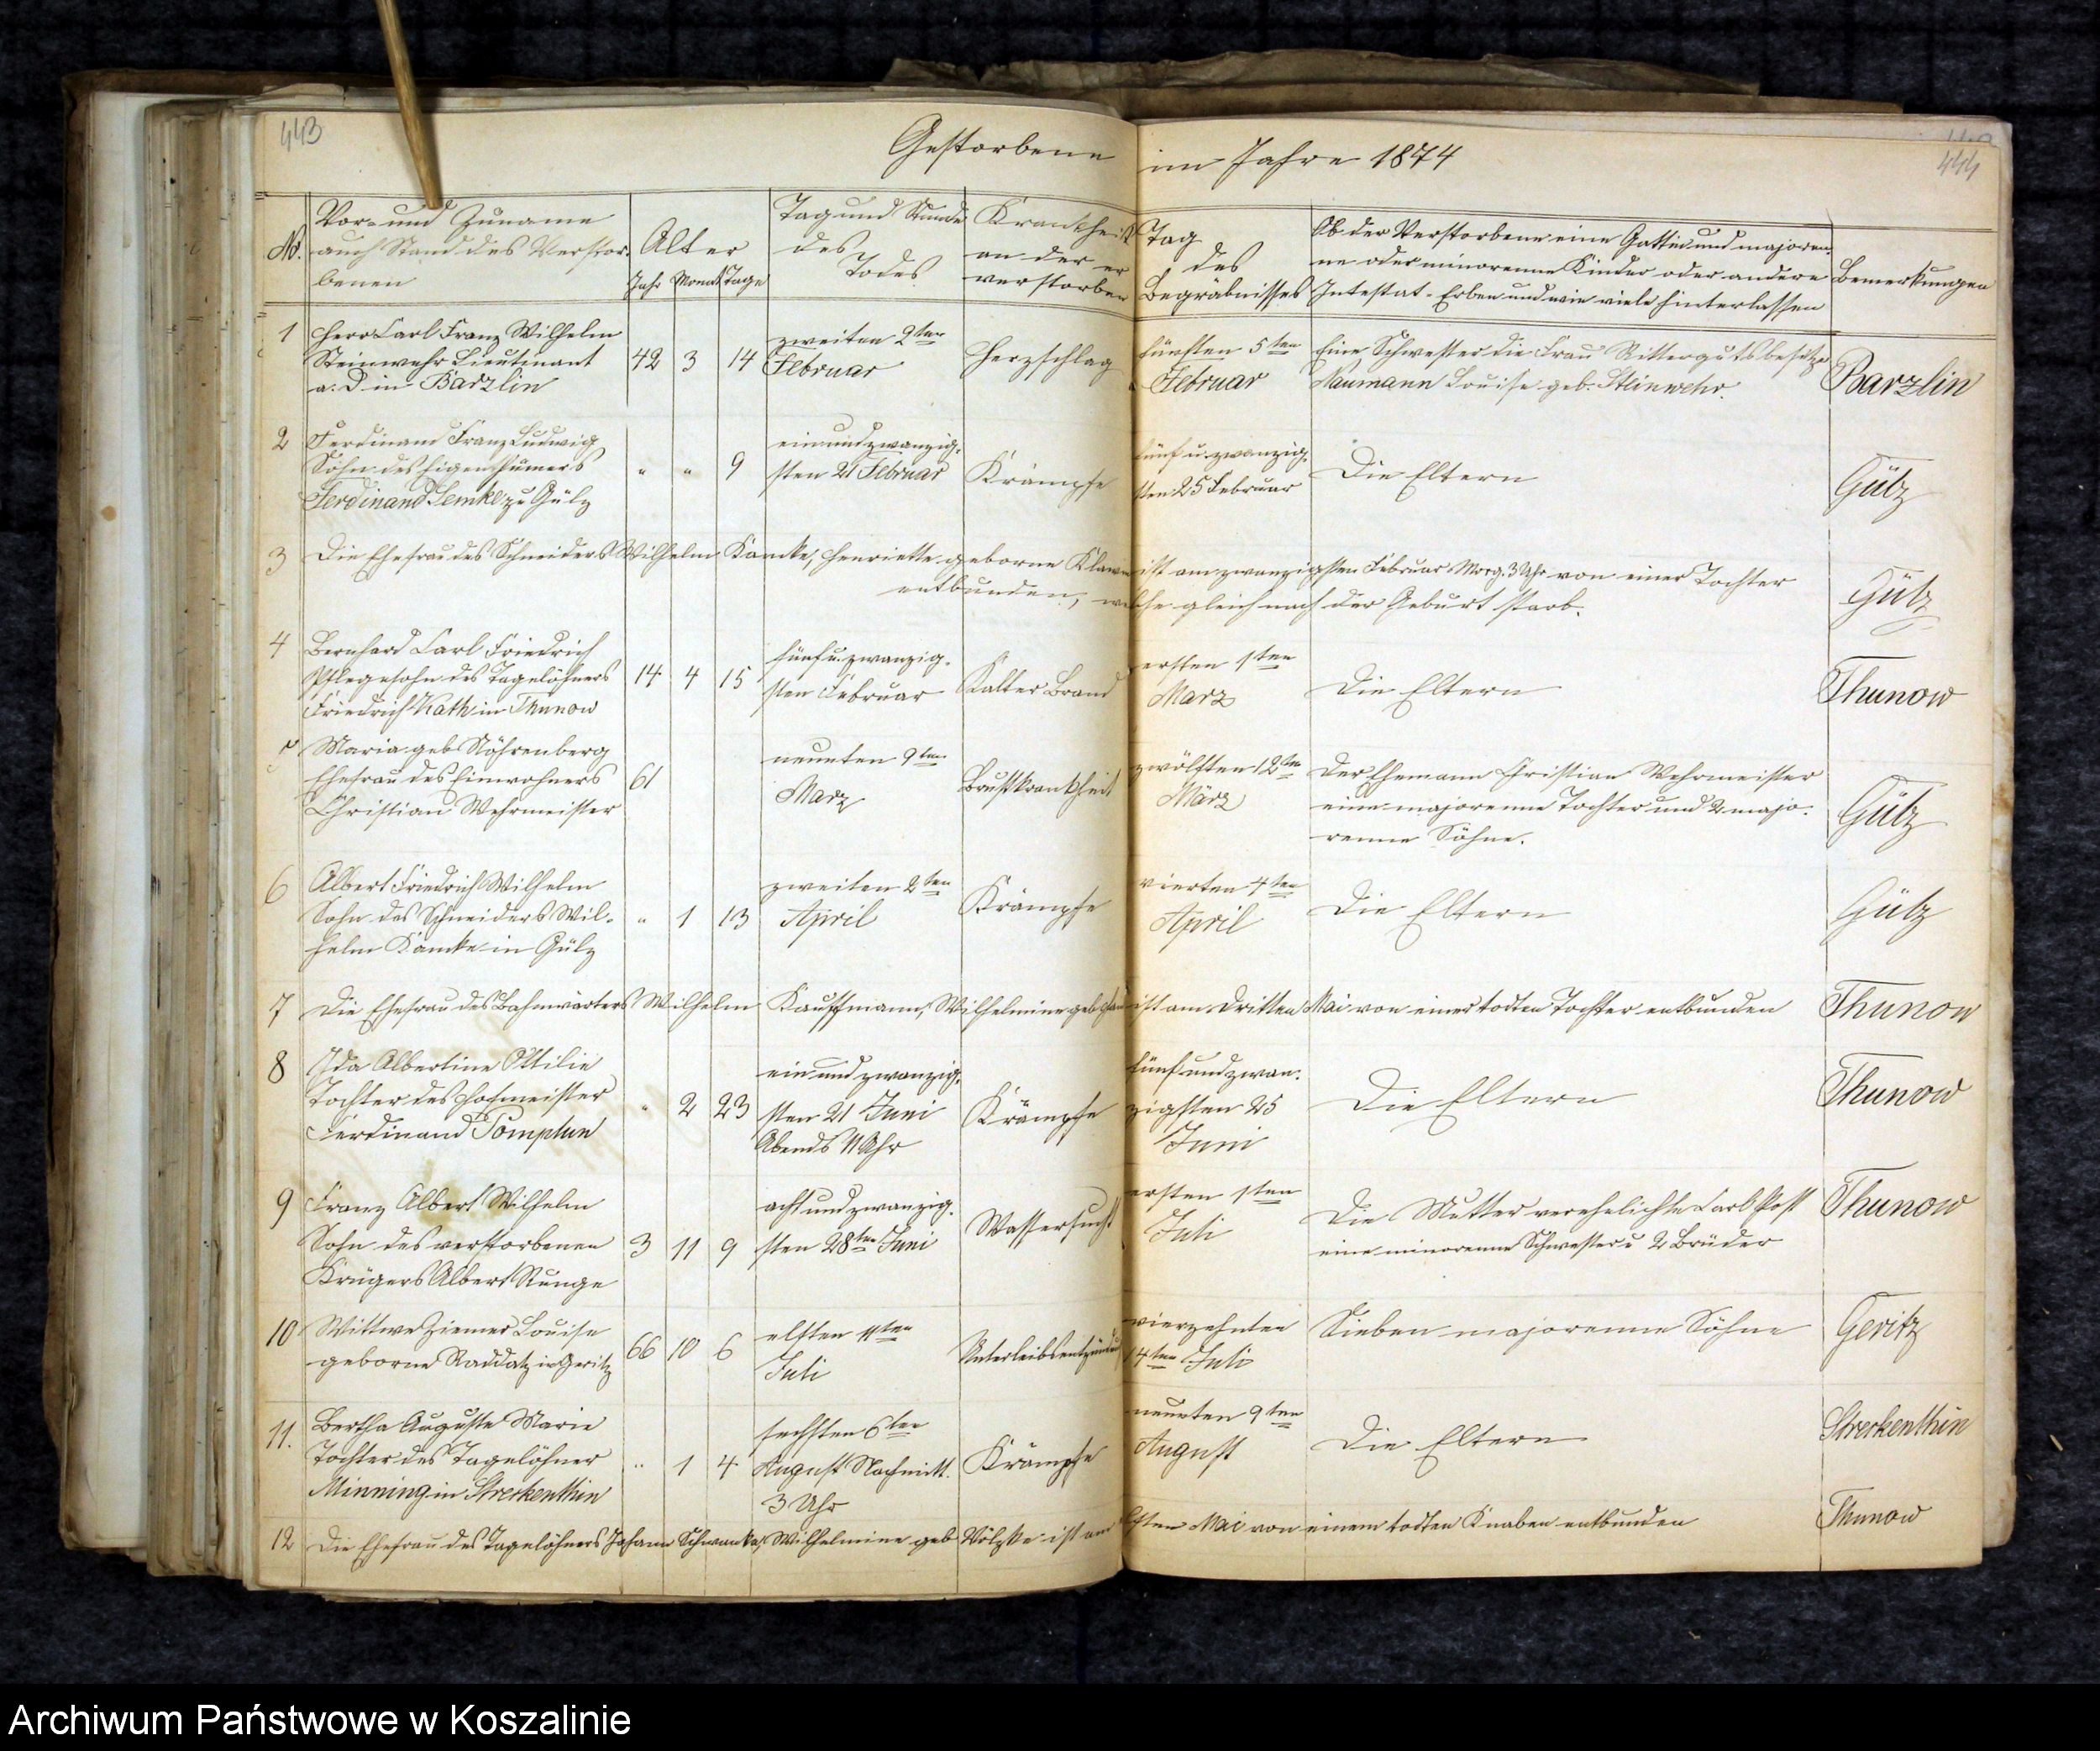 443
444
Gestorbene im Jahre 1874
No.
Vor- und Zuname
auch Stand des Verstor-
benen
Alter
Jahr Monat Tage
Tag und Stunde
des
Todes
Krankheit
an der er
verstorben
Tag
des
Begräbnisses
Ob der Verstorbene eine Gattin und majoren-
ne oder minorenne Kinder oder andere
Intestat-Erben und wie viele hinterlassen
Bemerkungen
1
Herr Carl Franz Wilhelm
Steinwehr Lieutinant
a. D in Barzlin
42 3 14
zweiten 2ten
Februar
Herzschlag
fünften 5ten
Februar
Eine Schwester die Frau Rittergutsbesitze
Naumann Louise geb. Steinwehr.
Barzlin
2
Ferdinand Franz Ludwig
Sohn des Eigenthümers
Ferdinand Lemke zu Gülz
" " 9
einundzwanzig-
sten 21 Februar
Krämpfe
fünf u. zwanzig-
sten 25 Februar
Die Eltern
Gülz
3
Die Ehefrau des Schneiders Wilhelm Kamke, Henriette geborne ist am zwanzigsten Februar Morg. 3 Uhr von einer Tochter
entbunden, welche gleich nach der Geburt starb.
Gülz
4
Bernhard Carl Friedrich
Pflegesohn des Tagelöhners
Friedrich Kath in Thunow
14 4 15
fünf u. zwanzig-
sten Februar
Kalter Brand
ersten 1ten
Marz
Die Eltern
Thunow
5
Maria geb. Nöhrenberg
Ehefrau des Einwohners
Christian Wehrmeister
61
neunten 9ten
Marz
Brustkrankheit
zwölften 12ten
März
Der Ehemann Christian Wehrmeister
eine majorenne Tochter und 2 majo-
renne Söhne.
Gülz
6
Albert Friedrich Wilhelm
Sohn des Schneiders Wil-
helm Kamke in Gülz
" 1 13
zweiten 2ten
April
Krämpfe
vierten 4ten
April
Die Eltern
Gülz
7
Die Ehefrau des Bahnwärters Wilhelm Kauffmann, Wilhelmine geb. ist am dritten Mai von einer todten Tochter entbunden
Thunow
8
Ida Albertine Ottilie
Tochter des Hofmeister
Ferdinand Pomplun
" 2 23
ein und zwanzig-
sten 21 Juni
Abends 11 Uhr
Krämpfe
fünf und zwan-
zigsten 25
Juni
Die Eltern
Thunow
9
Franz Albert Wilhelm
Sohn des verstorbenen
Krügers Albert Runge
3 11 9
acht und zwanzig-
sten 28ten Juni
Wassersucht
ersten 1ten
Juli
Die Mutter verehelichte Carl Post
eine minorenne Schwester u 2 Brüder
Thunow
10
Wittwe Ziemer Louise
geborne Raddatz in Geritz
66 10 6
elften 11ten
Juli
Unterleibsentzündung
vierzehnten
14ten Juli
Sieben majorenne Söhne
Geritz
11.
Bertha Auguste Marie
Tochter des Tagelöhner
Minning in Streckenthin
" 1 4
sechsten 6ten
August Nachmitt.
3 Uhr
Krämpfe
neunten 9ten
August
Die Eltern
Streckenthin
12
Die Ehefrau des Tagelöhners Johann Schwanke, Wilhelmine geb. Völzke ist am Mai von einem todten Knaben entbunden
Thunow
Archiwum Państwowe w Koszalinie